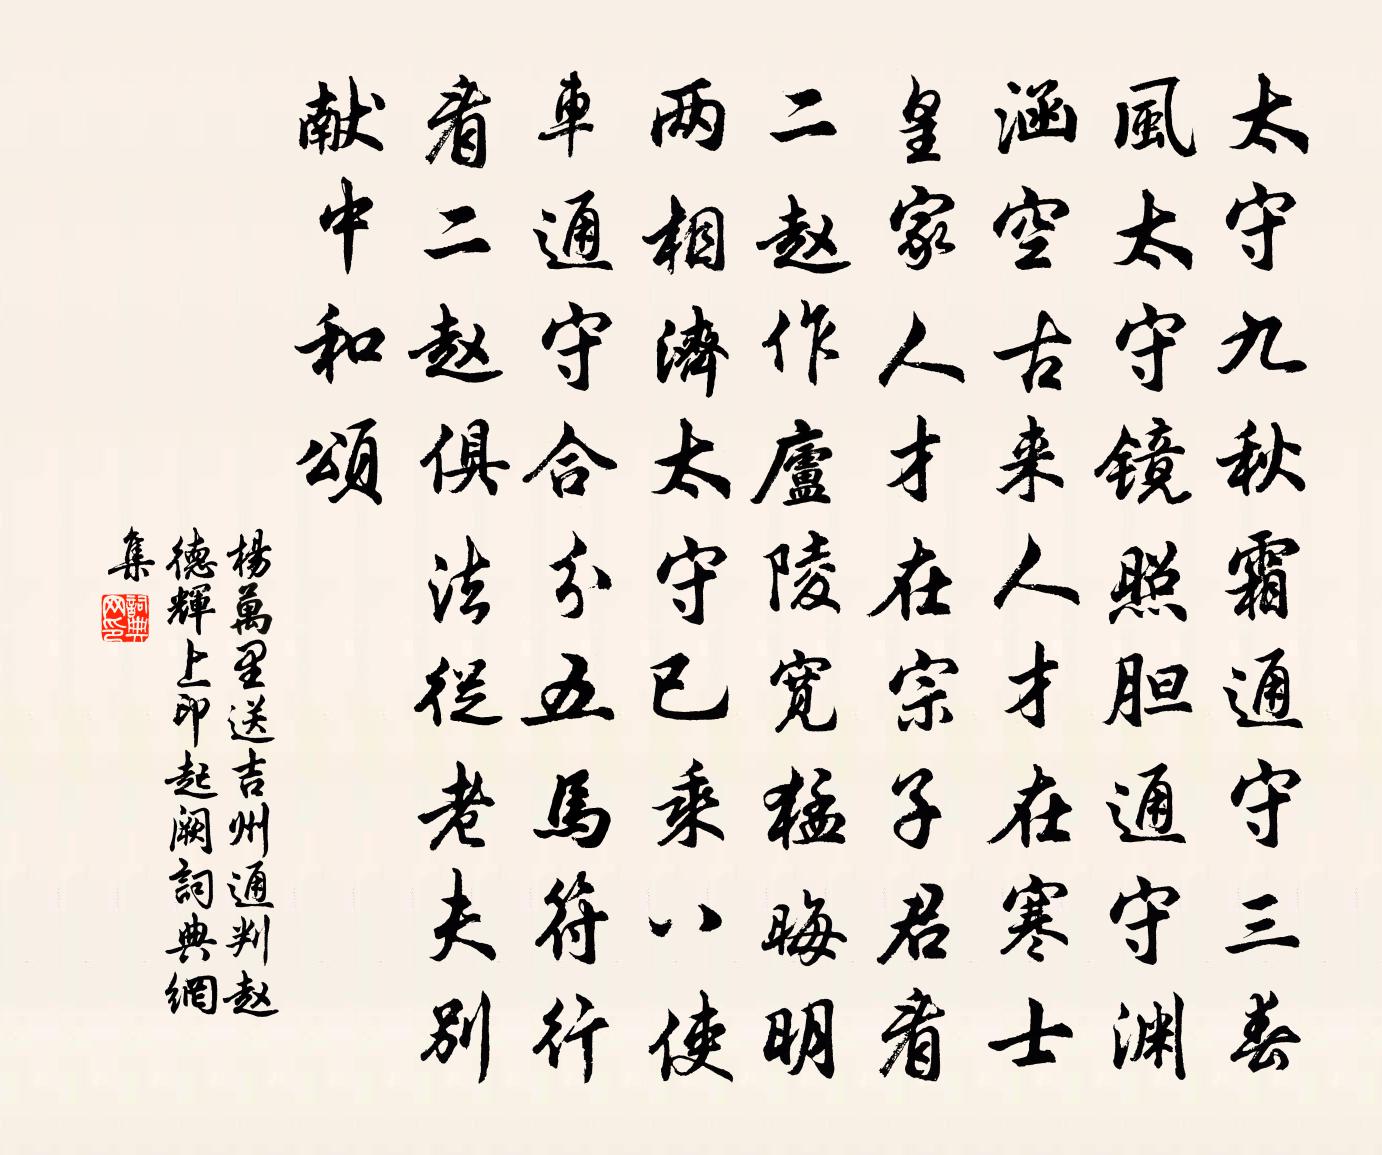 太守九秋霜通守三春
風太守镜照胆通守渊
涵空古来人才在寒士
皇家人才在宗子君看
二赵作廬陵宽猛晦明
两相濟太守已乘八使
車通守合分五馬符行
看二赵俱法從老夫别
献中和頌
楊萬里送吉州通判赵
德輝上印起阙詞典網
集
詞典网印